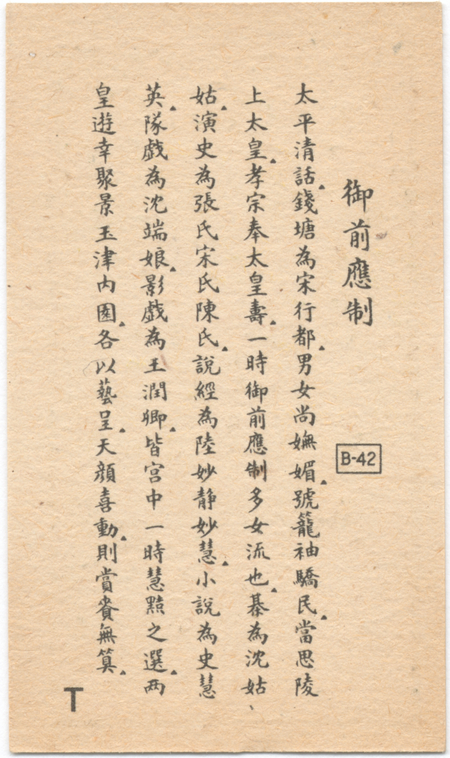 御前應制
B-42
太平清話。錢塘為宋行都。男女尚嫵媚。號籠袖驕民。當思陵
上太皇。孝宗奉太皇壽。一時御前應制多女流也。棊為沈姑
姑。演史為張氏宋氏陳氏。說經為陸妙静妙慧。小說為史慧
英。隊戲為沈端娘。影戲為王潤卿。皆宮中一時慧黠之選。両
皇遊幸聚景玉津內園。各以藝呈。天顏喜動。則賞賚無算。
T